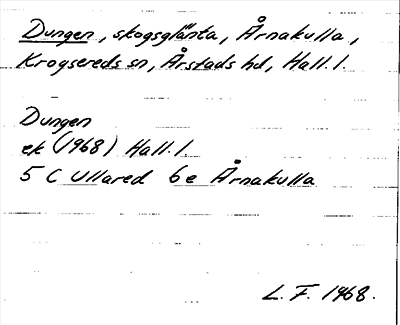 Dungen, skogsglänta, Årnakulla,
Krogsereds sn, Årstads hd, Hall. l.
Dungen
ek (1968) Hall. l.
5 C Ullared 6e Årnakulla
L. F. 1968.